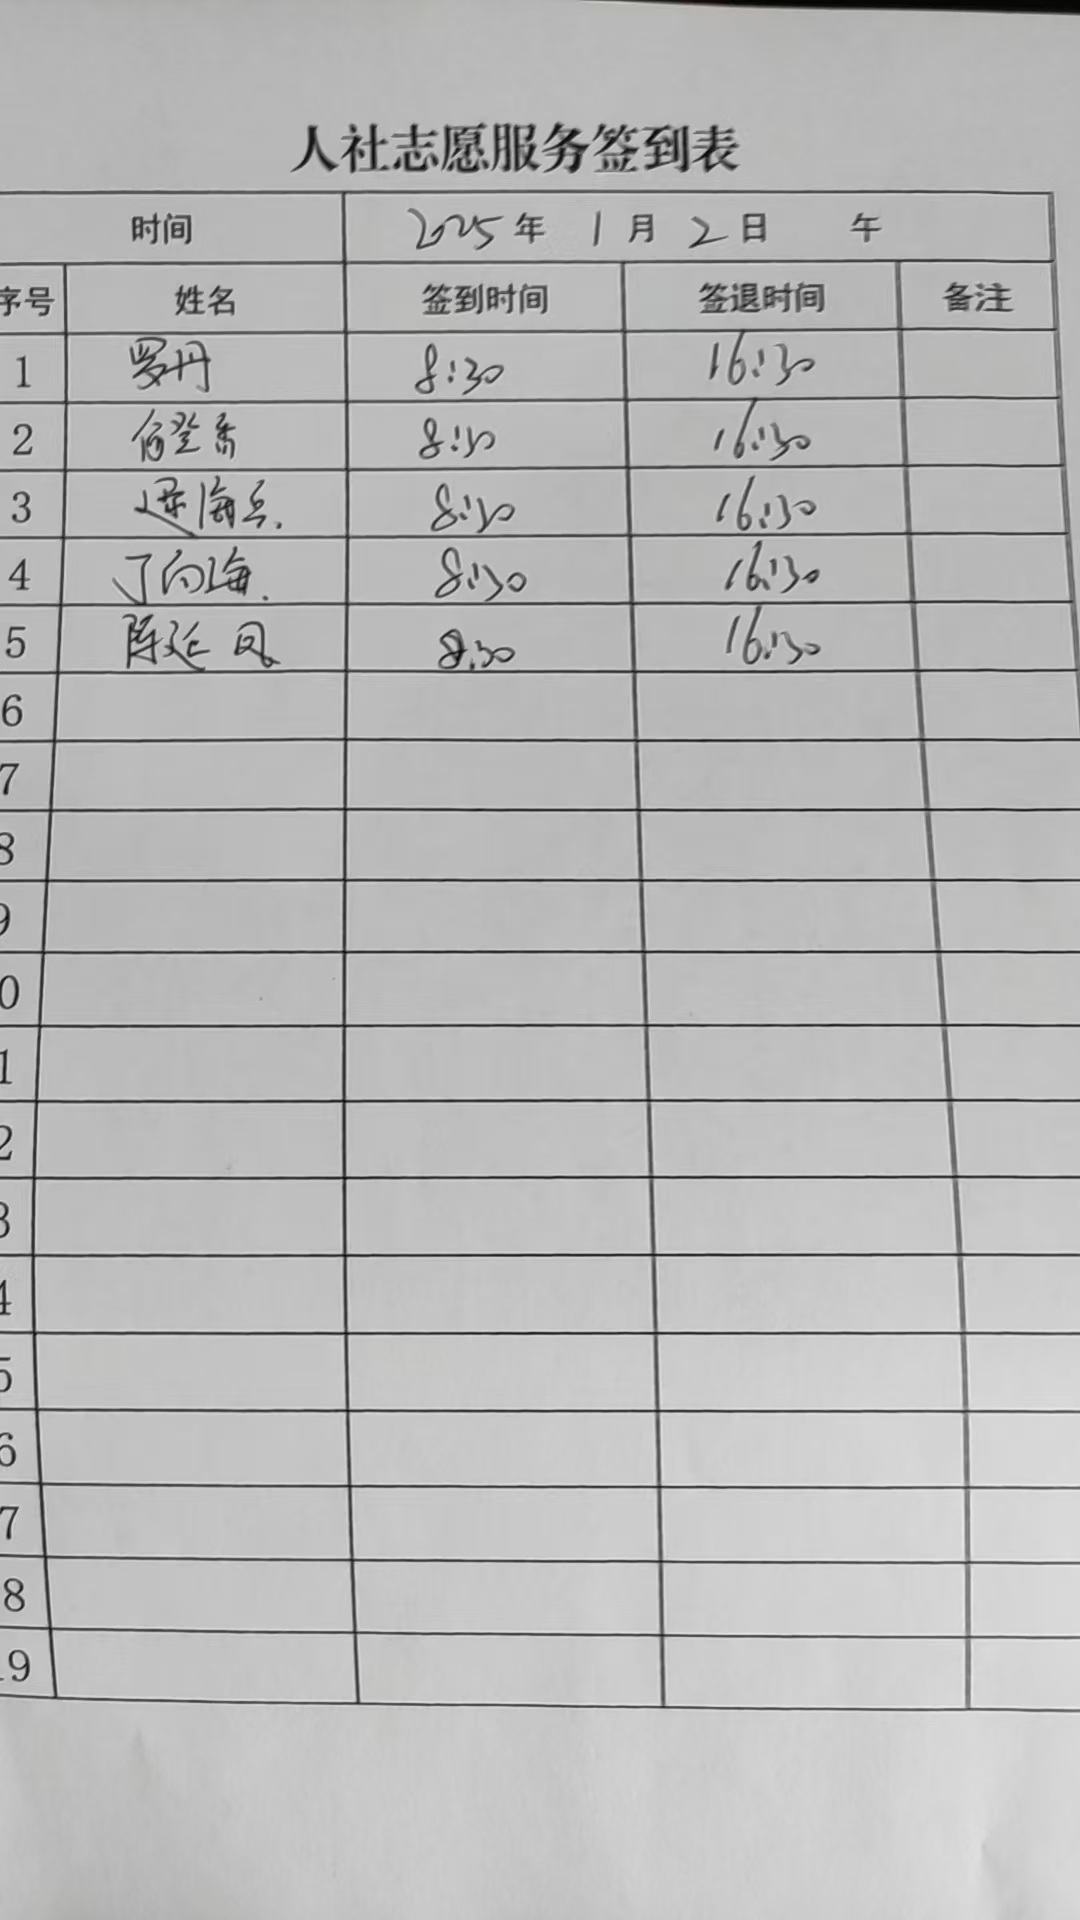 人社志愿服务签到表
时间 2025年 1月 2日 午
序号 姓名 签到时间 签退时间 备注
1 罗丹 8:30 16:30
2 8:30 16:30
3 梁海兵 8:30 16:30
4 丁向海 8:30 16:30
5 陈延凤 8:30 16:30
6
7
8
9
0
1
2
3
4
5
6
7
8
19